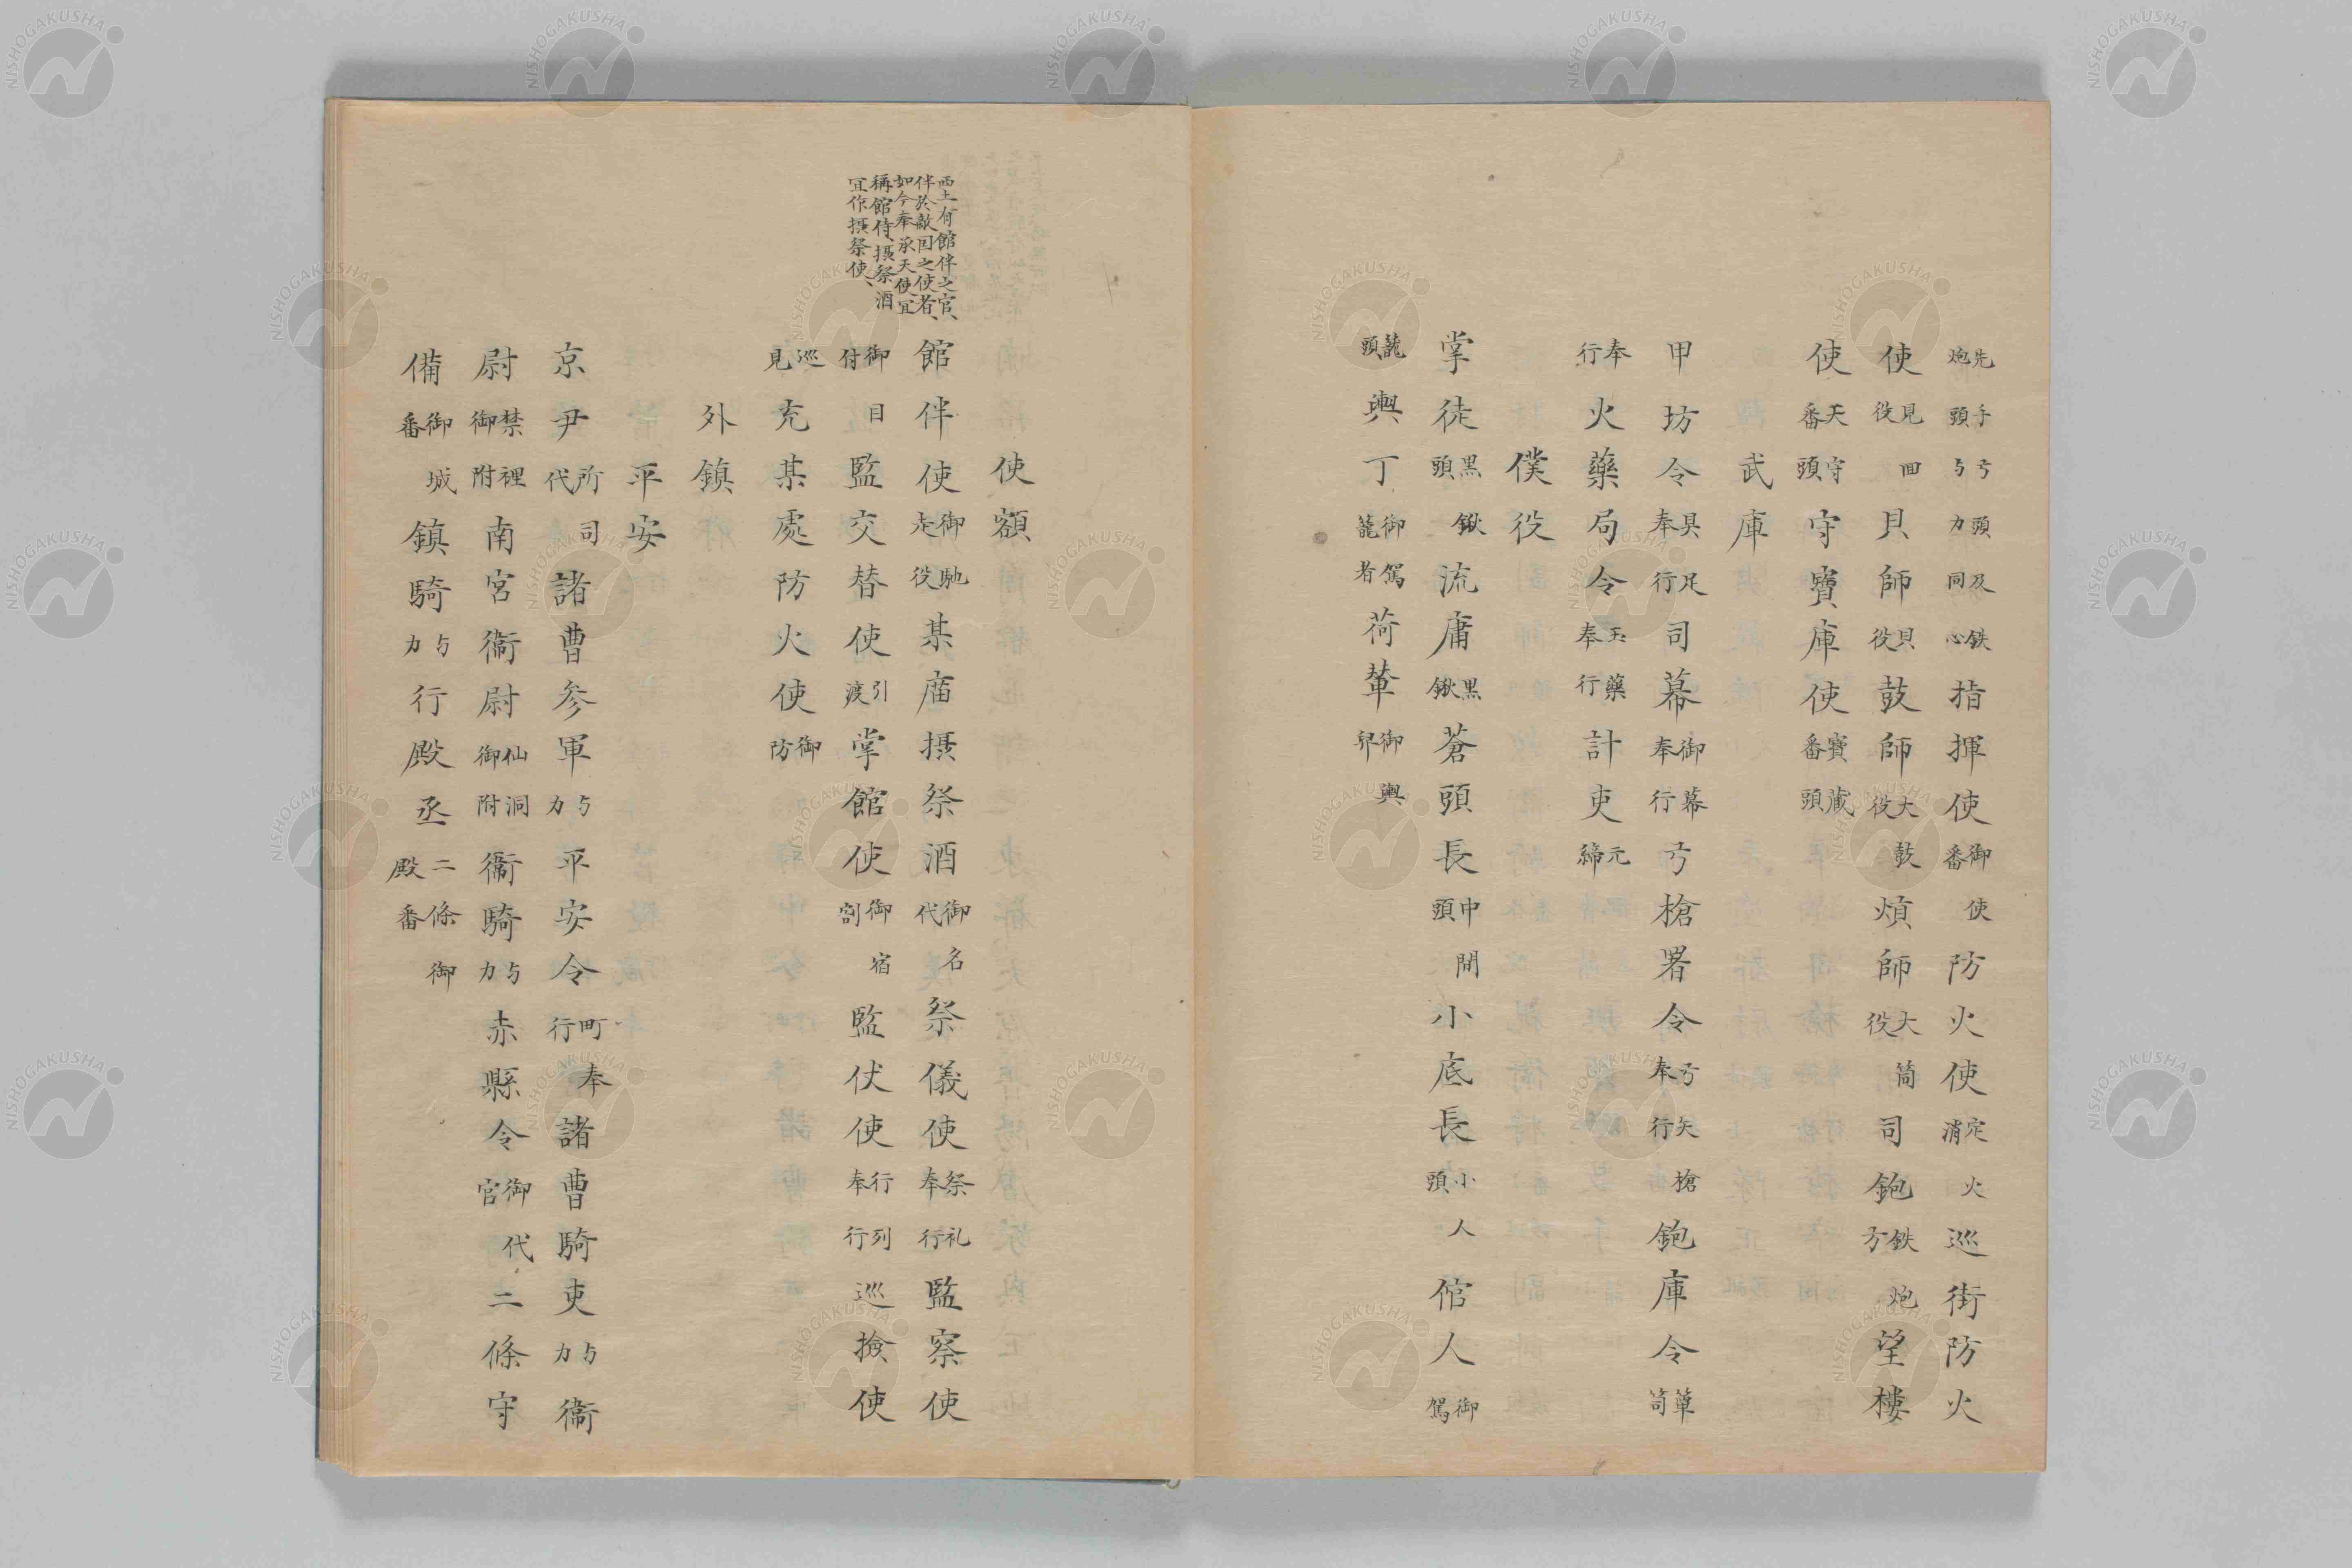 先手弓頭及鉄炮頭与力同心指揮使御使番防火使定火消巡街防火
使見回役貝師貝役鼓師大鼓役熕師大筒役司鉋鉄炮方望樓
使天守番頭守寶庫使寶蔵番頭
武庫
甲坊令具足奉行司幕御幕奉行弓槍署令弓矢槍奉行鉋庫令簞笥
奉行火藥局令玉藥奉行計吏元締
僕役
掌徒黒鍬頭流庸黒鍬蒼頭長中間頭小底長小人頭倌人御駕
籠頭輿丁御駕籠者荷輦御輿舁
使額
西土有館伴之官、
伴於敵囯之使者、
如今奉承天使冝
稱館待、摂祭酒
冝作摂祭使、
館伴使御馳走役某庿摂祭酒御名代祭儀使祭礼奉行監察使
御目付監交替使引渡掌館使御宿割監仗使行列奉行巡撿使
巡見充某處防火使御防
外鎮
平安
京尹所司代諸曹参軍与力平安令町奉行諸曹騎吏与力衞
尉禁裡御附南宮衞尉仙洞御附衞騎与力赤縣令御代官二條守
備御城番鎮騎与力行殿丞二條御殿番